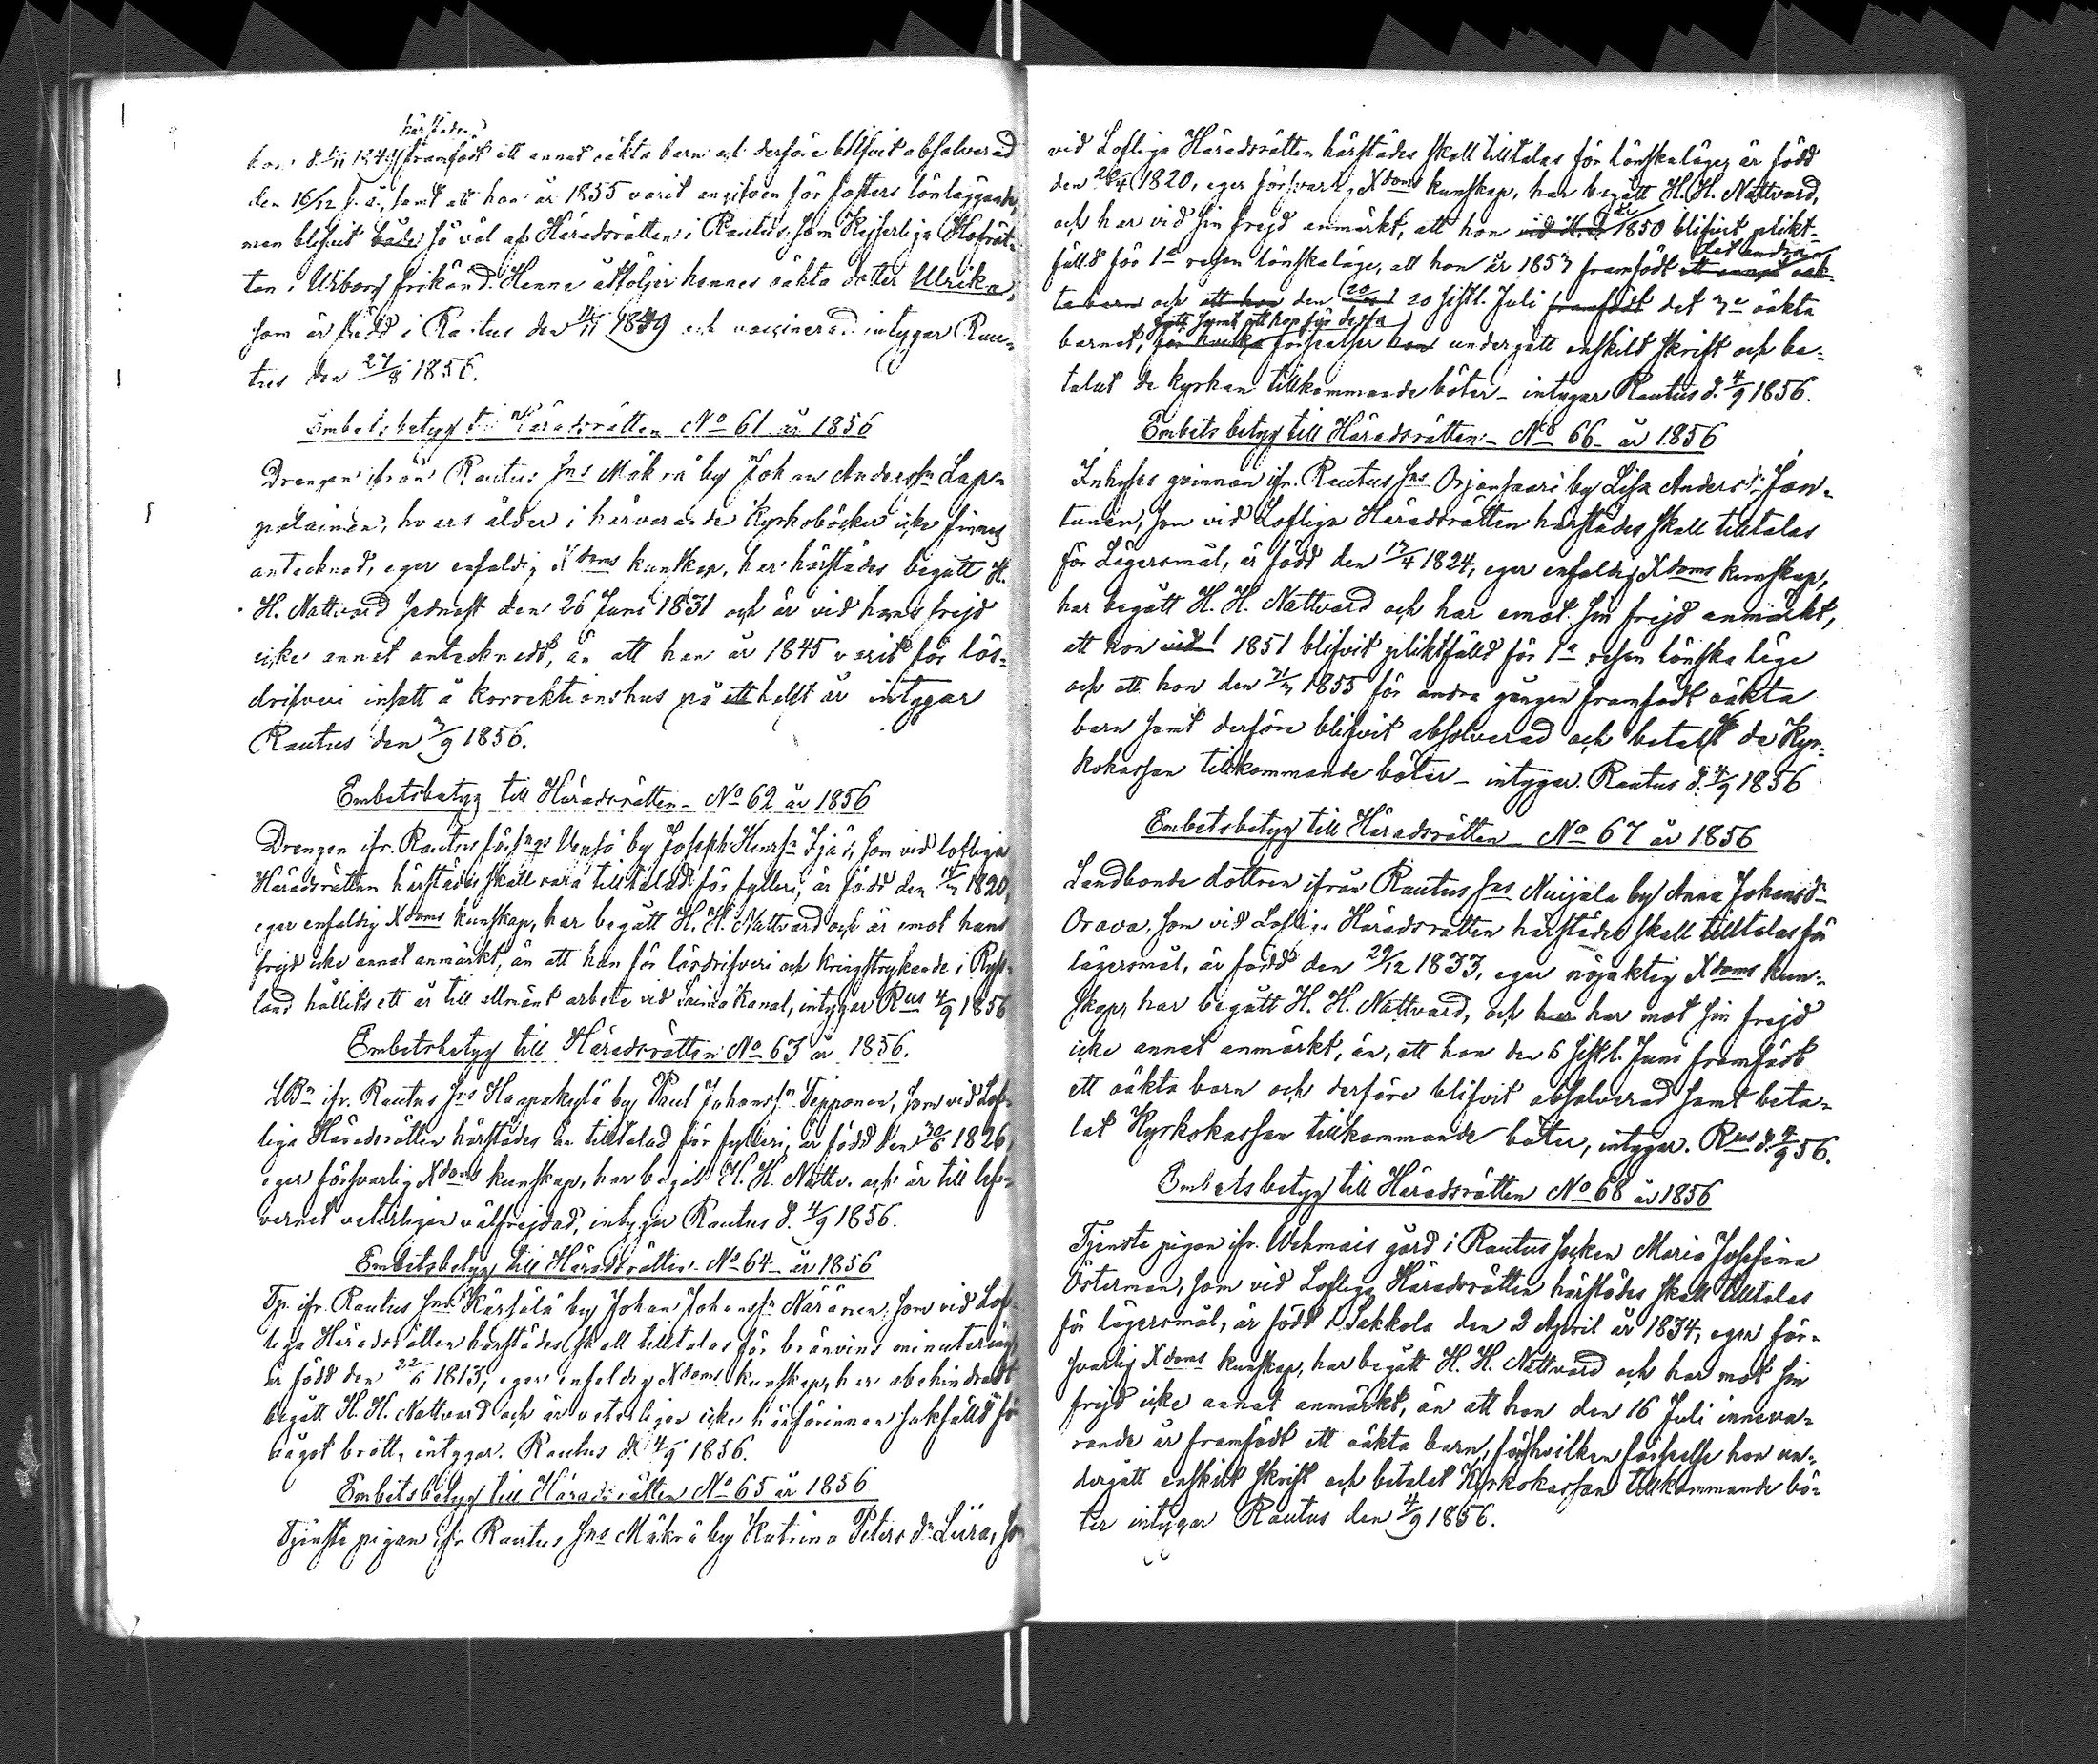 härstädes
hon d. 14/11 1849 framfödt ett annat oäkta barn och derföre blifvit absolverad
den 16/12 s. å., samt att hon år 1855 varit angifven för fosters lönläggande,
men blifvit både så väl af Häradsrätten i Rautus, som Kejserliga Hofrät-
ten i Wiborg frikänd. Henne åtföljer hennes oäkta dotter Ulrika,
som är född i Rautus den 14/11 1849 och vaccinerad intygar Rau-
tus den 27/8 1856.
Embetsbetyg till Häradsrätten No 61 år 1856
Drengen ifrån Rautus Sns Mäkrä by Johan Anderssn Lapa-
palainen, hvars ålder i härvarande Kyrkoböcker icke finnes
antecknad, eger enfaldig Xdoms kunskap, har härstädes begått H.
H. Nattvard sednast den 26 Juni 1831 och är vid hans frejd
icke annat antecknadt, än att han år 1845 varit för lös-
drifveri insatt å Korrektionshus på ett helt år intygar
Rautus den 3/9 1856.
Embetsbetyg till Häradsrätten No 62 år 1856
Drengen ifr. Rautus förs:ngs Wepsä by Joseph Henrsn Äjäs, som vid lofliga
Häradsrätten härstädes skall vara tilltalad för fylleri, är född den 14/3 1820,
eger enfaldig Xdoms kunskap, har begått H. H. Nattvard och är emot hans
frejd icke annat anmärkt, än att han för lösdrifveri och kringstrykande i Ryss-
land hållits ett år till allmänt arbete vid Saima Kanal, intygar Rus 4/9 1856
Embetsbetyg till Häradsrätten No 63 år 1856.
LBn ifr. Rautus Sns Haapakylä by Paul Johanssn Tepponen, som vid Lof-
liga Häradsrätten härstädes är tilltalad för fylleri, är född den 30/6 1826,
eger försvarlig Xdoms kunskap, har begått H. H. Nattv. och är till lef-
vernet veterligen välfrejdad, intygar Rautus d. 4/9 1856.
Embetsbetyg till Häradsrätten No 64 år 1856
Tp. ifr. Rautus Sns Kärsälä by Johan Johanssn Näränen, som vid Lof-
liga Häradsrätten härstädes skall tilltalas för bränvins minutering
är född den 22/6 1813, eger enfaldig Xdoms kunskap, har obehindradt
begått H. H. Nattvard och är veterligen icke härförinnan sakfälld för
något brott, intygar. Rautus d. 4/9 1856.
Embetsbetyg till Häradsrätten No 65 år 1856
Tjenste pigan ifr. Rautus Sns Mäkrä by Katrina Peters dr Liira, som
vid Lofliga Häradsrätten härstädes skall tilltalas för lönskaläger är född
den 26/4 1820, eger försvarlig Xdoms kunskap, har begått H. H. Nattvard,
och har vid sin frejd anmärkt, att hon vid H. år 1850 blifvit plikt-
fälld för 1a resan lönskaläge, att hon år 1853 framfödt det andra
ta barn och att hon den 20 sistl. Juli framfödt det 3e oäkta
fött samt att hon för dessa
barnet, för hvilka förseelser hon undergått enskild skrift och be-
talat de kyrkan tillkommande böter - intygar Rautus d. 4/9 1856.
Embets betyg till Häradsrätten - No 66 - år 1856
Inhyses qvinnan ifr. Rautus Sns Orjansaari by Lisa Anders dr Jan-
tunen, som vid Lofliga Häradsrätten härstädes skall tilltalas
för Lägersmål, är född den 13/4 1824, eger enfaldig Xdoms kunskap,
har begått H. H. Nattvard och har emot sin frejd anmärkt,
att hon vid 1851 blifvit pliktfälld för 1a resan lönska läge
och att hon den 31/3 1855 för andra gången framfödt oäkta
barn samt derföre blifvit absolverad och betalt de Kyr-
kokassan tillkommande böter - intygar. Rautus d. 4/9 1856
Embetsbetyg till Häradsrätten No 67 år 1856
Landbonde dottren ifrån Rautus Sns Nuijala by Anna Johansdr
Orava, som vid Lofliga Häradsrätten härstädes skall tilltalas för
lägersmål, är född den 29/12 1833, eger nöjaktig Xdoms kun-
skap, har begått H. H. Nattvard, och har har mot sin frejd
icke annat anmärkt, än, att hon den 6 sistl. Juni framfödt
ett oäkta barn och derföre blifvit absolverad samt beta-
lat Kyrkokassan tillkommande böter, intygar. Rus d. 4/9 56.
Embetsbetyg till Häradsrätten No 68 år 1856
Tjenste pigan ifr. Wehmais gård i Rautus socken Maria Josefina
Österman, som vid Lofliga Häradsrätten härstädes skall tilltalas
för lägersmål, är född i Sakkola den 2 April år 1834, eger för-
svarlig Xdoms kunskap, har begått H. H. Nattvard och har mot sin
frejd icke annat anmärkt, än att hon den 16 Juli inneva-
rande år framfödt ett oäkta barn, för hvilken förseelse hon un-
dergått enskilt skrift och betalat Kyrkokassan tillkommande bö-
ter intygar Rautus den 4/9 1856.